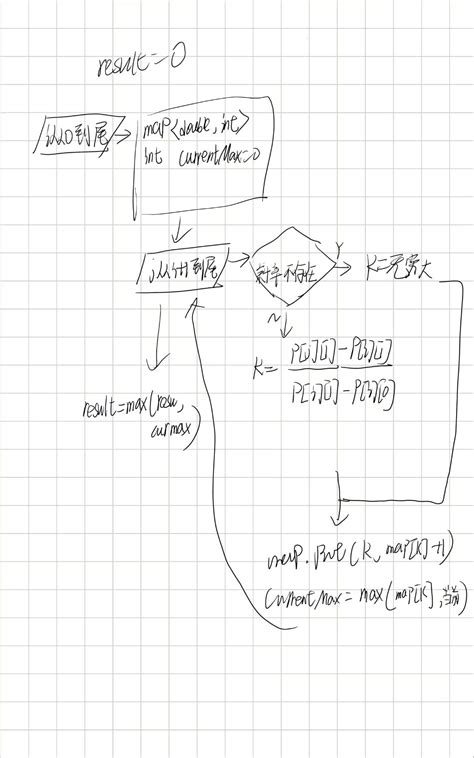 result=0
从0到尾
map<double,int>
int currentMax=0
j从i+1到尾
斜率不存在
Y
K=无穷大
N
K=
result=max(resu,
curmax)
map.put(K,map[K]+1)
currentMax=max(map[K],当前)